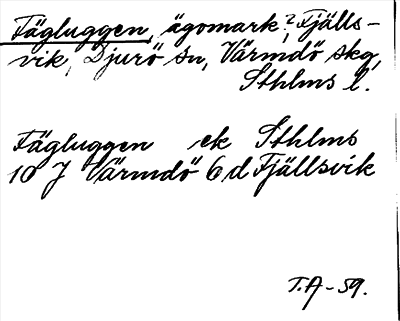 Fägluggen, ägomark?, Fjälls-
vik, Djurö sn, Värmdö skg,
Sthlms l.
Fägluggen ek Sthlms
10 J Värmdö 6 d Fjällsvik
T.A-59.